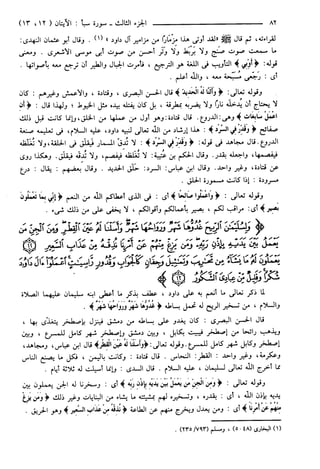 ٨٢ الجزء الثالث - سورة سبأ : الآيتان ( ١٢ ، ١٣ )
لقراءته ، ثم قال ﷺ «لقد أوتى هذا مزمارًا من مزامير آل داود » (١) . وقال أبو عثمان النهدى :
ما سمعت صوت صنج ولا بربط ولا وتر أحسن من صوت أبى موسى الأشعرى . ومعنى
قوله : ﴿ أوبى ﴾ التأويب فى اللغة هو الترجيع ، فأمرت الجبال والطير أن ترجع معه بأصواتها .
أى : رجعى مسبحة معه ، والله أعلم .
وقوله تعالى : ﴿ وألنا له الحديد ﴾ قال الحسن البصرى ، وقتادة ، والأعمش وغيرهم : كان
لا يحتاج أن يدخله نارًا ولا يضربه بمطرقة ، بل كان يفتله بيده مثل الخيوط ، ولهذا قال : ﴿ أن
اعمل سابغات ﴾ وهى : الدروع . قال قتادة : وهو أول من عملها من الحلق ، وإنما كانت قبل ذلك
صفائح ﴿ وقدر فى السرد ﴾ : هذا إرشاد من الله تعالى لنبيه داود ، عليه السلام ، فى تعليمه صنعة
الدروع . قال مجاهد فى قوله : ﴿ وقدر فى السرد ﴾ : لا تُدِقّ المسمار فيقلق فى الحلقة ، ولا تُغلظه
فيفصمها ، واجعله بقدر . وقال الحكم بن عتيبة : لا تغلظه فيفصم ، ولا تدقه فيقلق . وهكذا روى
عن قتادة ، وغير واحد . وقال ابن عباس : السرد : حلَق الحديد . وقال بعضهم : يقال : درع
مسرودة : إذا كانت مسمورة الحلق .
وقوله تعالى : ﴿ واعملوا صالحا ﴾ أى : فى الذى أعطاكم الله من النعم ﴿ إنى بما تعملون
بصير ﴾ أى : مراقب لكم ، بصير بأعمالكم وأقوالكم ، لا يخفى على من ذلك شىء .
﴿ ولسليمان الريح غدوها شهر ورواحها شهر وأسلنا له عين القطر ومن الجن من
يعمل بين يديه بإذن ربه ومن يزغ منهم عن أمرنا نذقه من عذاب السعير (١٢) يعملون له
ما يشاء من محاريب وتماثيل وجفان كالجواب وقدور راسيات اعملوا آل داود
شكرا وقليل من عبادى الشكور (١٣) ﴾
لما ذكر تعالى ما أنعم به على داود ، عطف بذكر ما أعطى ابنه سليمان عليهما الصلاة
والسلام ، من تسخير الريح له تحمل بساطه ﴿ غدوها شهر ورواحها شهر ﴾ .
قال الحسن البصرى : كان يغدو على بساطه من دمشق فينزل بإصطخر يتغدى بها ،
ويذهب رائحا من إصطخر فيبيت بكابل ، وبين دمشق وإصطخر شهر كامل للمسرع ، وبين
إصطخر وكابل شهر كامل للمسرع . وقوله تعالى : ﴿ وأسلنا له عين القطر ﴾ قال ابن عباس ، ومجاهد ،
وعكرمة ، وغير واحد : القطر : النحاس . قال قتادة : وكانت باليمن ، فكل ما يصنع الناس
مما أخرج الله تعالى لسليمان ، عليه السلام . قال السدى : وإنما أسيلت له ثلاثة أيام .
وقوله تعالى : ﴿ ومن الجن من يعمل بين يديه بإذن ربه ﴾ أى : وسخرنا له الجن يعملون بين
يديه بإذن الله ، أى : بقدره ، وتسخيره لهم بمشيئته ما يشاء من البنايات وغير ذلك ﴿ ومن يزغ
منهم عن أمرنا ﴾ أى : ومن يعدل ويخرج منهم عن الطاعة ﴿ نذقه من عذاب السعير ﴾ وهو الحريق .
(١) البخارى (٥٠٤٨) ، ومسلم (٧٩٣/ ٢٣٥) .